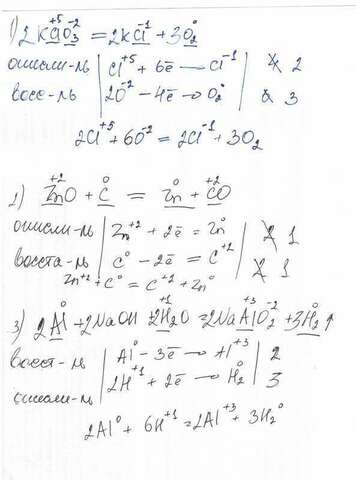 1) 2KClO₃ = 2KCl + 3O₂ (Cl⁺⁵, O⁻², Cl⁻¹, O₂⁰)
окисли-ль | Cl⁺⁵ + 6ē → Cl⁻¹ | 2
восс-ль | 2O⁻² − 4ē → O₂⁰ | 3
2Cl⁺⁵ + 6O⁻² = 2Cl⁻¹ + 3O₂
2) Zn⁺²O + C⁰ = Zn⁰ + C⁺²O
окисли-ль | Zn⁺² + 2ē = Zn⁰ | 1
восста-ль | C⁰ − 2ē = C⁺² | 1
Zn⁺² + C⁰ = C⁺² + Zn⁰
3) 2Al⁰ + 2NaOH + 2H₂⁺¹O = 2NaAl⁺³O₂⁻² + 3H₂⁰↑
восст-ль | Al⁰ − 3ē → Al⁺³ | 2
окисли-ль | 2H⁺¹ + 2ē → H₂⁰ | 3
2Al⁰ + 6H⁺¹ = 2Al⁺³ + 3H₂⁰